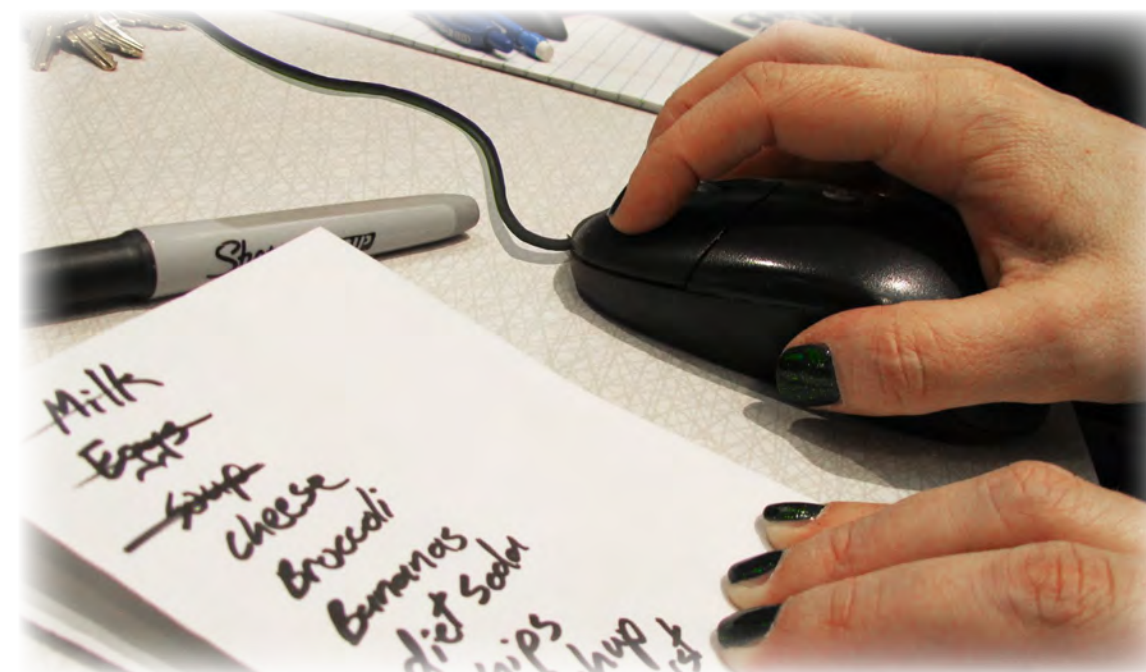 Sha
Milk
Eggs
Soup
cheese
Broccoli
Bananas
diet soda